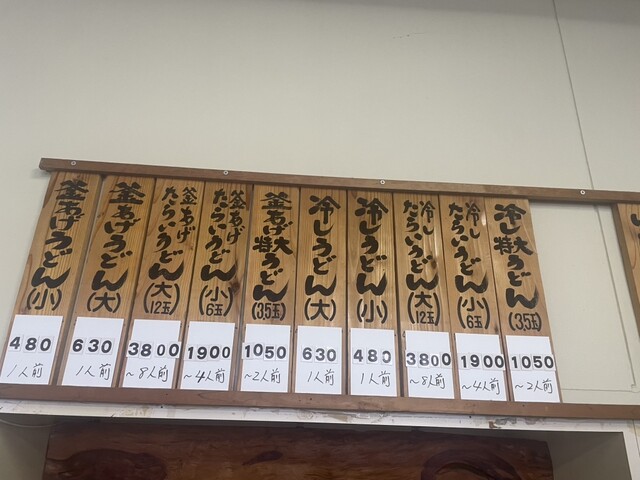 釜あげうどん(小)
480
1人前
釜あげうどん(大)
630
1人前
釜あげ
たらいうどん(大)
12玉
3800
~8人前
釜あげ
たらいうどん(小)
6玉
1900
~4人前
釜あげ特大うどん
(3.5玉)
1050
~2人前
冷しうどん(大)
630
1人前
冷しうどん(小)
480
1人前
冷し
たらいうどん(大)
12玉
3800
~8人前
冷し
たらいうどん(小)
6玉
1900
~4人前
冷し特大うどん
(3.5玉)
1050
~2人前